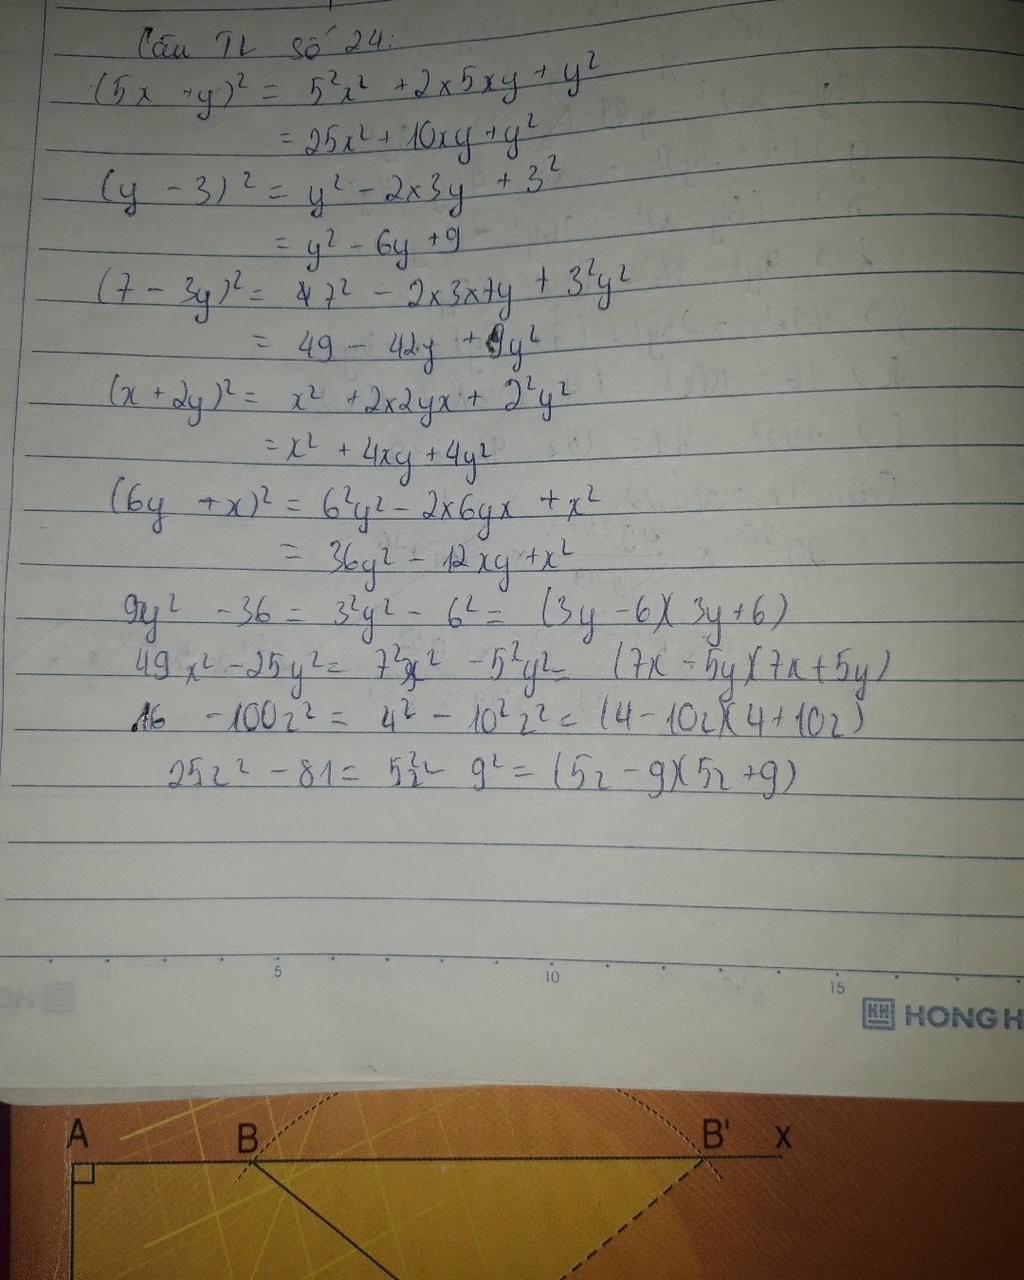 Câu TL số 24:
(5x + y)² = 5²x² + 2x5xy + y²
= 25x² + 10xy + y²
(y - 3)² = y² - 2x3y + 3²
= y² - 6y + 9
(7 - 3y)² = 7² - 2x3x7y + 3²y²
= 49 - 42y + 9y²
(x + 2y)² = x² + 2x2yx + 2²y²
= x² + 4xy + 4y²
(6y + x)² = 6²y² - 2x6yx + x²
= 36y² - 12xy + x²
9y² - 36 = 3²y² - 6² = (3y - 6)(3y + 6)
49x² - 25y² = 7²x² - 5²y² = (7x - 5y)(7x + 5y)
16 - 100z² = 4² - 10²z² = (4 - 10z)(4 + 10z)
25z² - 81 = 5²z² - 9² = (5z - 9)(5z + 9)
5 10 15
HONG H
A B B' x